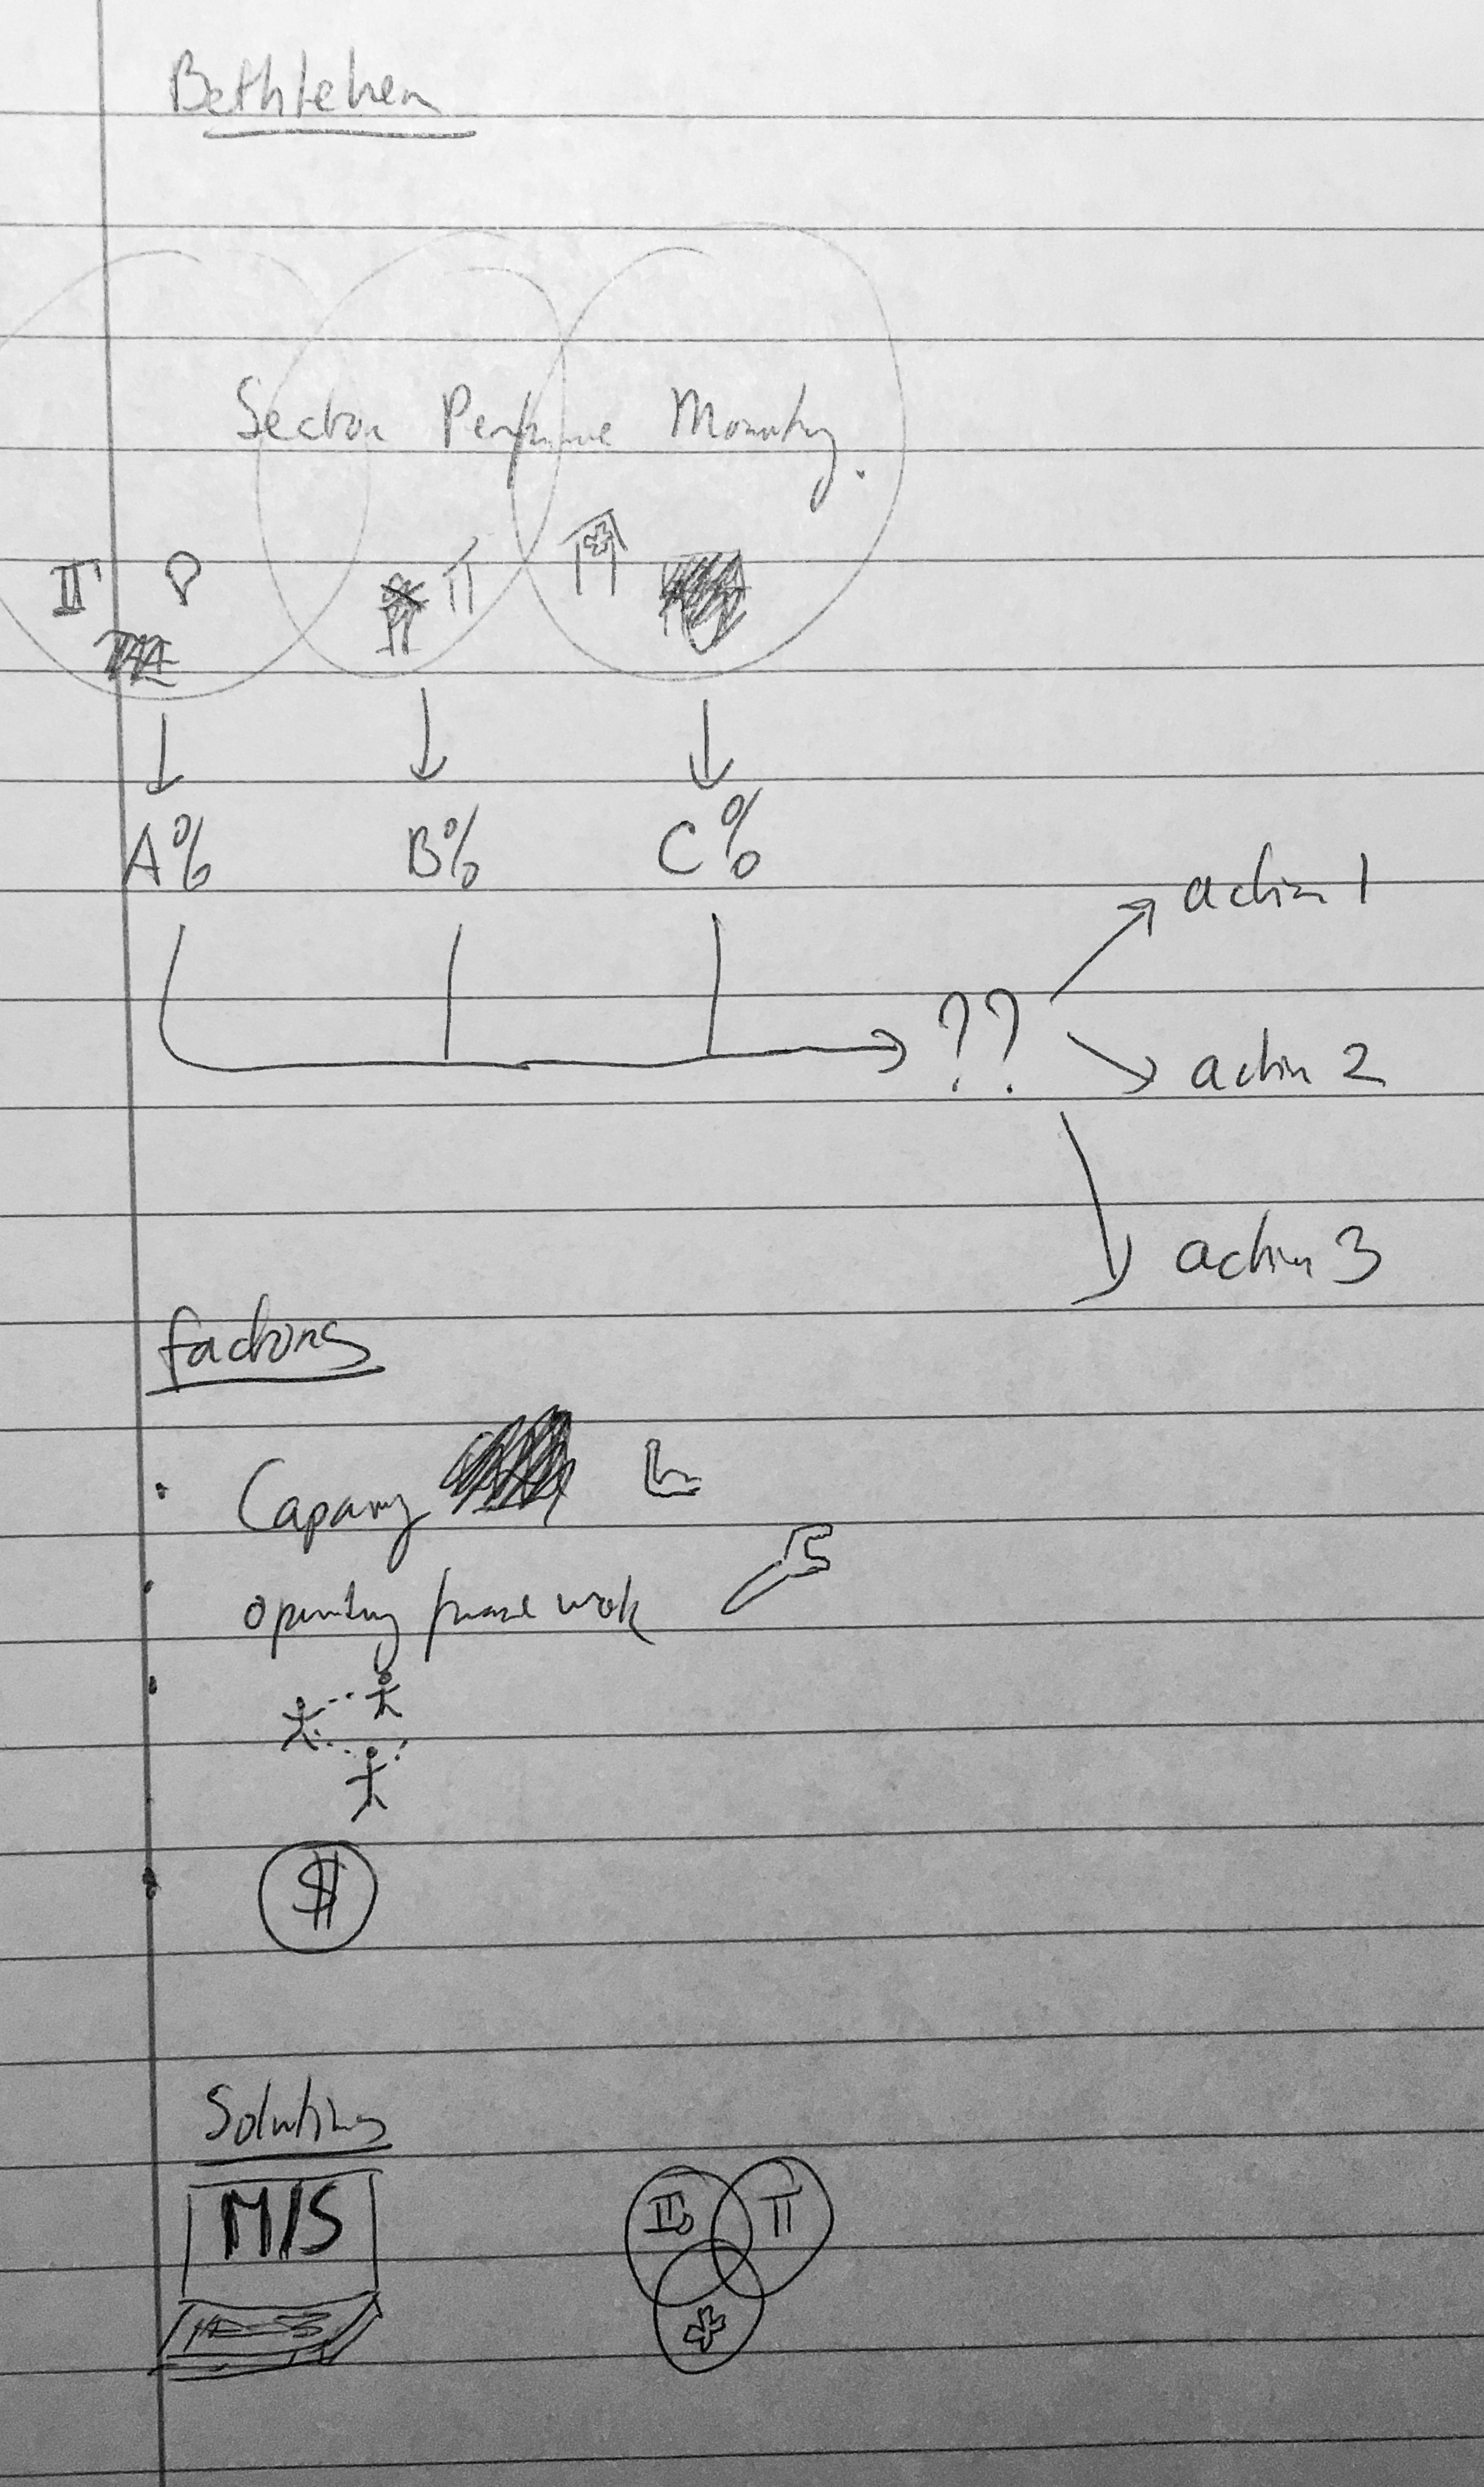 Bethlehem
Sector Performance Monitoring.
A% B% C%
action 1
??
action 2
action 3
factors
Capacity
operating framework
$
Solutions
MIS